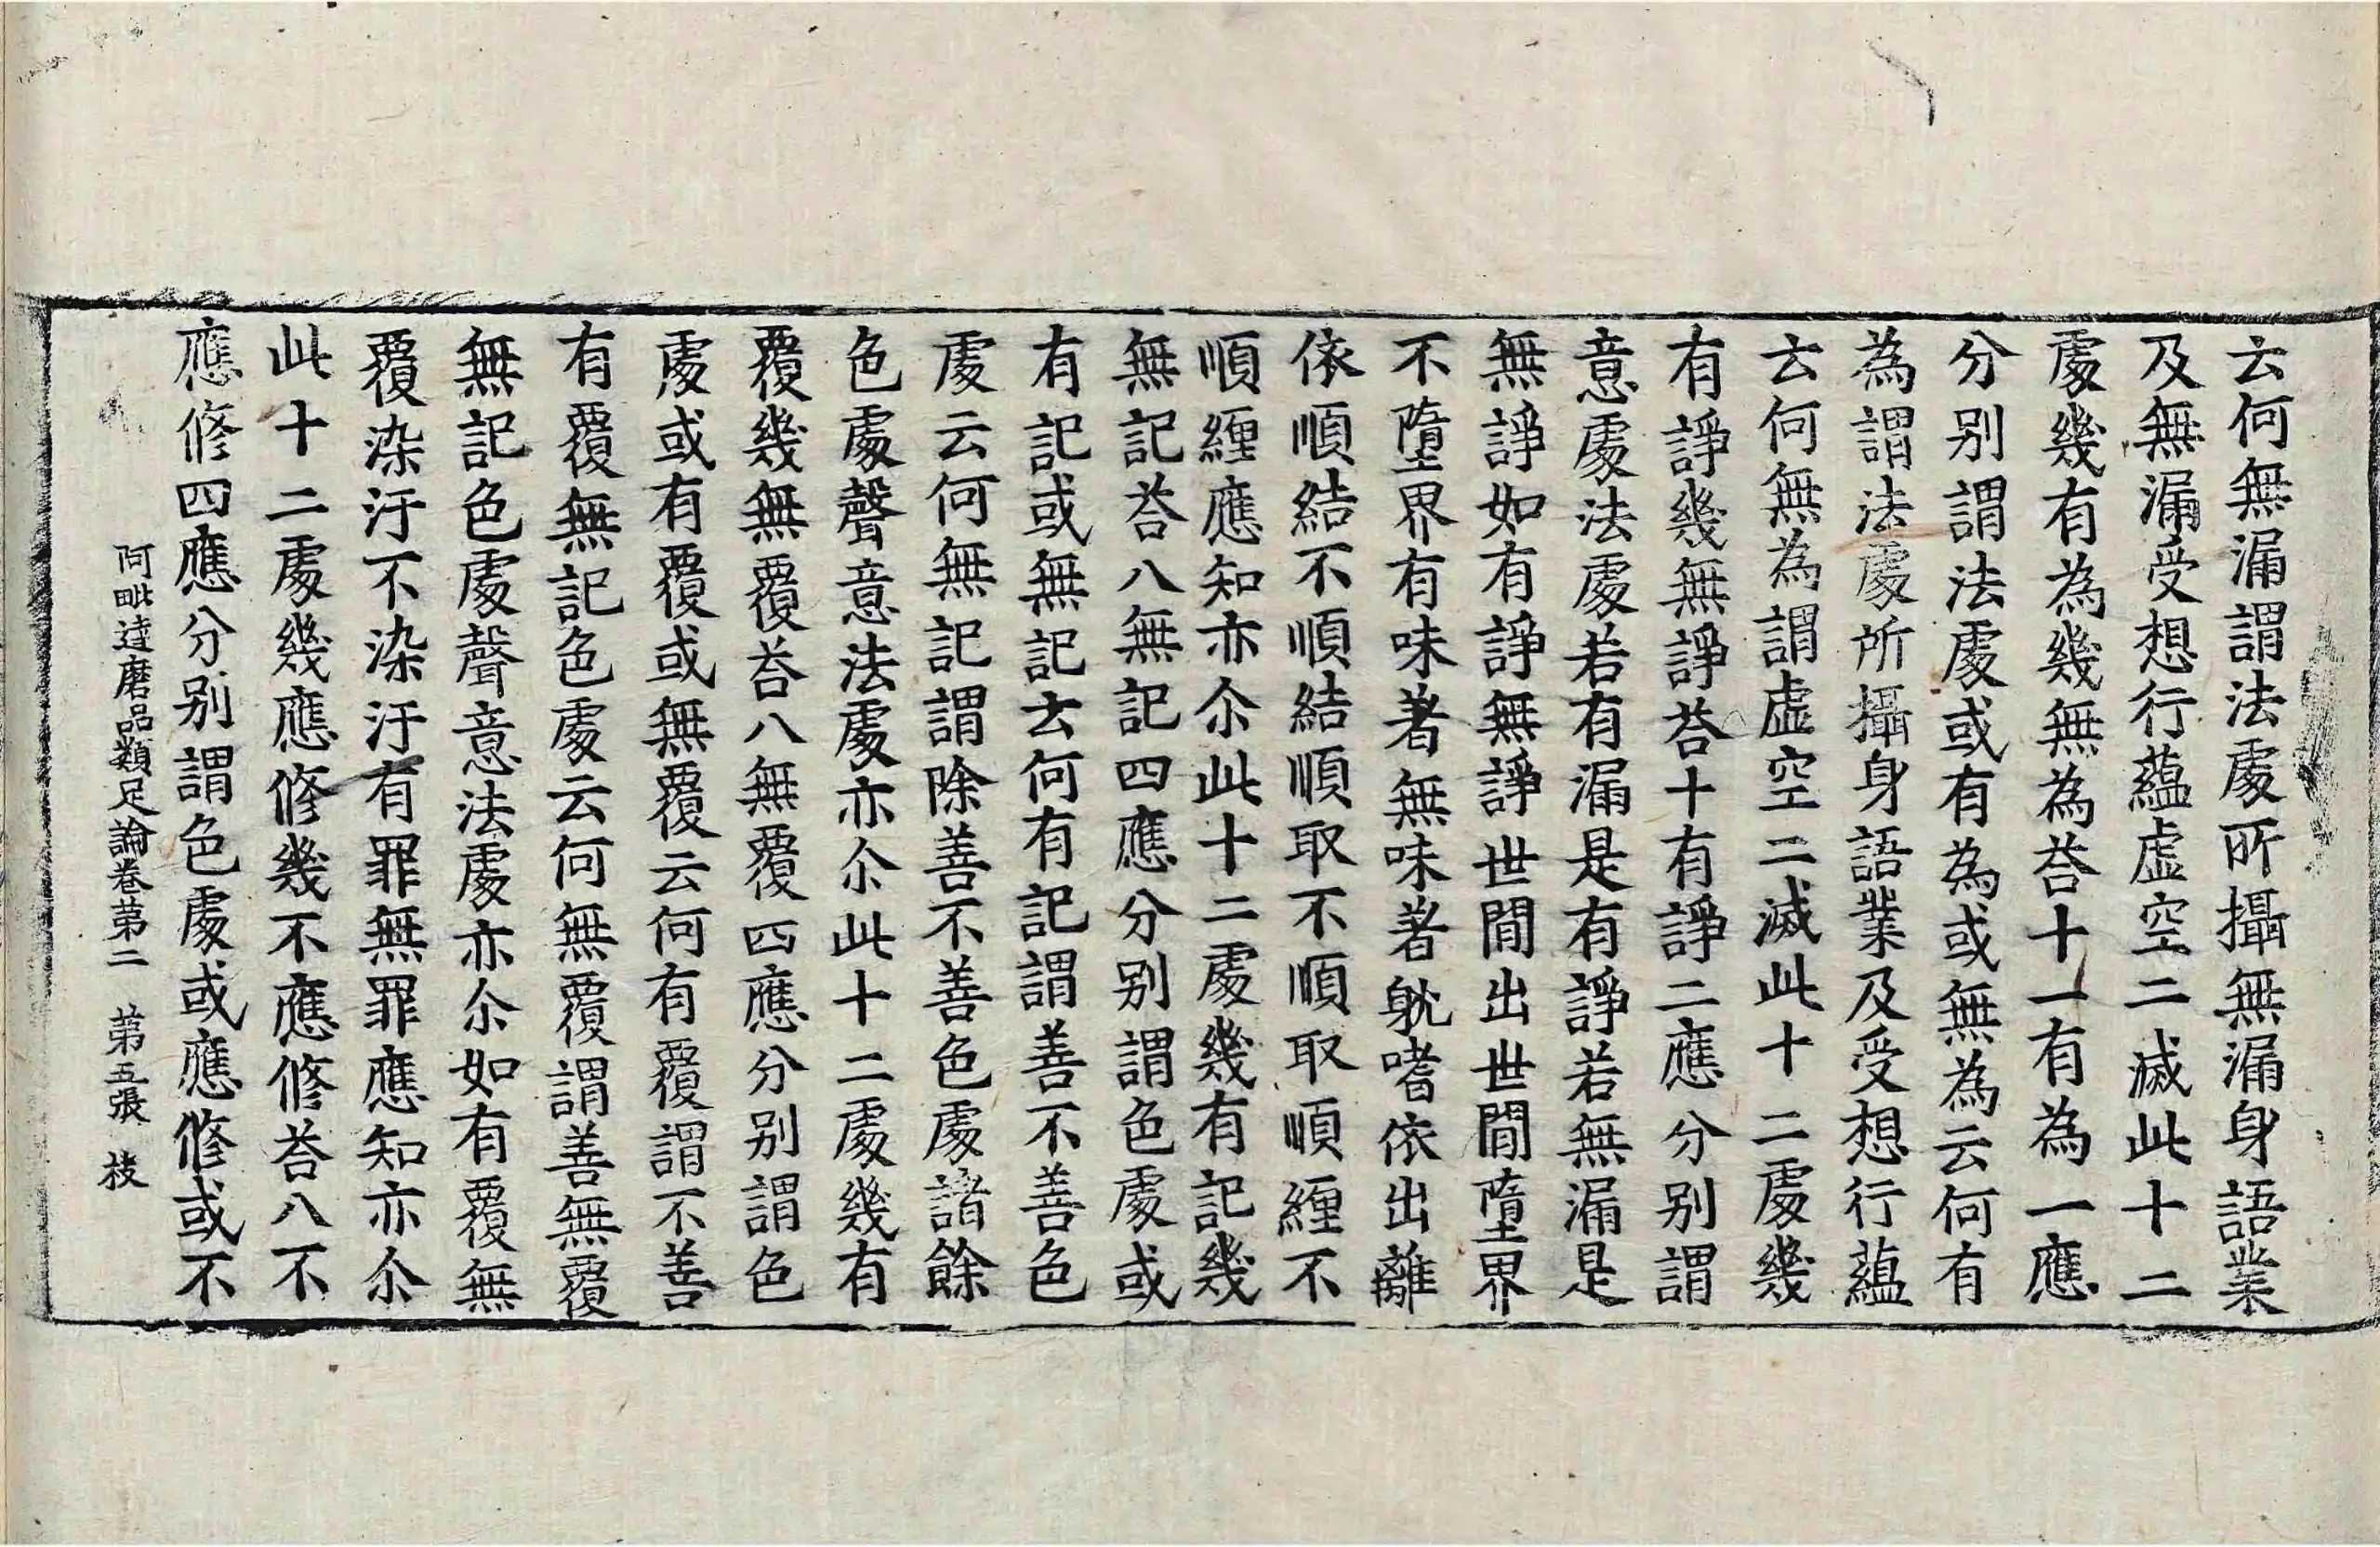 云何無漏謂法處所攝無漏身語業
及無漏受想行蘊虛空二滅此十二
處幾有為幾無為荅十一有為一應
分別謂法處或有為或無為云何有
為謂法處所攝身語業及受想行蘊
云何無為謂虛空二滅此十二處幾
有諍幾無諍荅十有諍二應分別謂
意處法處若有漏是有諍若無漏是
無諍如有諍無諍世間出世間墮界
不墮界有味著無味著躭嗜依出離
依順結不順結順取不順取順纏不
順纏應知亦尒此十二處幾有記幾
無記荅八無記四應分別謂色處或
有記或無記云何有記謂善不善色
處云何無記謂除善不善色處諸餘
色處聲意法處亦尒此十二處幾有
覆幾無覆荅八無覆四應分別謂色
處或有覆或無覆云何有覆謂不善
有覆無記色處云何無覆謂善無覆
無記色處聲意法處亦尒如有覆無
覆染汙不染汙有罪無罪應知亦尒
此十二處幾應修幾不應修荅八不
應修四應分別謂色處或應修或不
阿毗達磨品類足論卷第二 第五張 枝